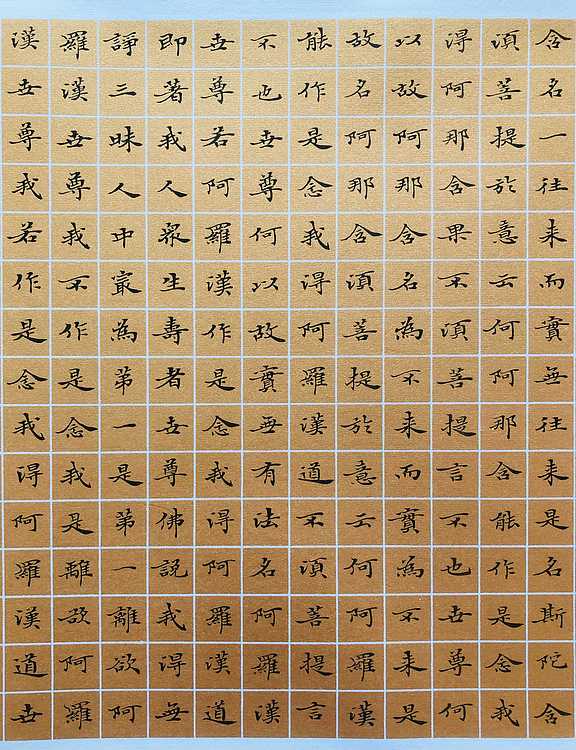 含名一往来而實無往来是名斯陀含
須菩提於意云何阿那含能作是念我
得阿那含果不須菩提言不也世尊何
以故阿那含名為不来而實為不来是
故名阿那含須菩提於意云何阿羅漢
能作是念我得阿羅漢道不須菩提言
不也世尊何以故實無有法名阿羅漢
世尊若阿羅漢作是念我得阿羅漢道
即著我人衆生壽者世尊佛說我得無
諍三昧人中㝡為第一是第一離欲阿
羅漢世尊我不作是念我是離欲阿羅
漢世尊我若作是念我得阿羅漢道世